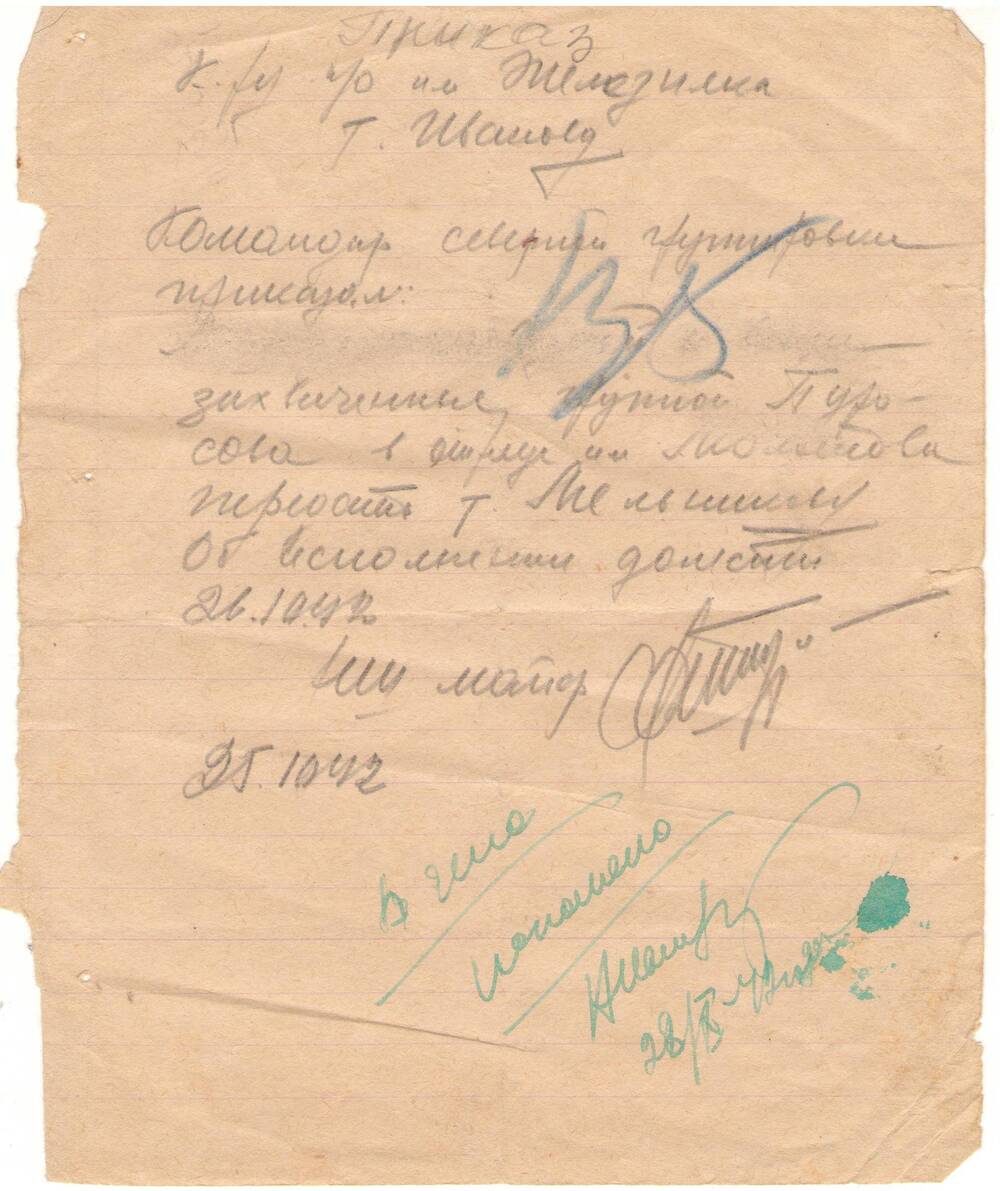 Приказ
К-ру п/о им Железняка
т. Иванову
Командир северной группировки
приказал:
захваченные группой
сова в отряде им Молотова
передать т. Мельникову
Об исполнении донести
26.10.42
НШ майор
25.10.42
В дело
исполнено
28/X-42